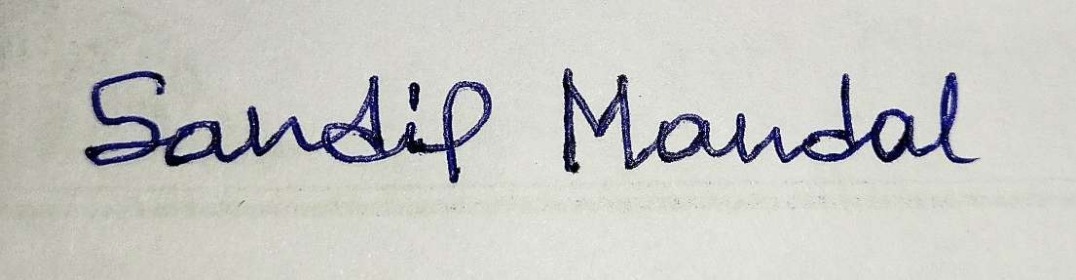 Sandip Mandal